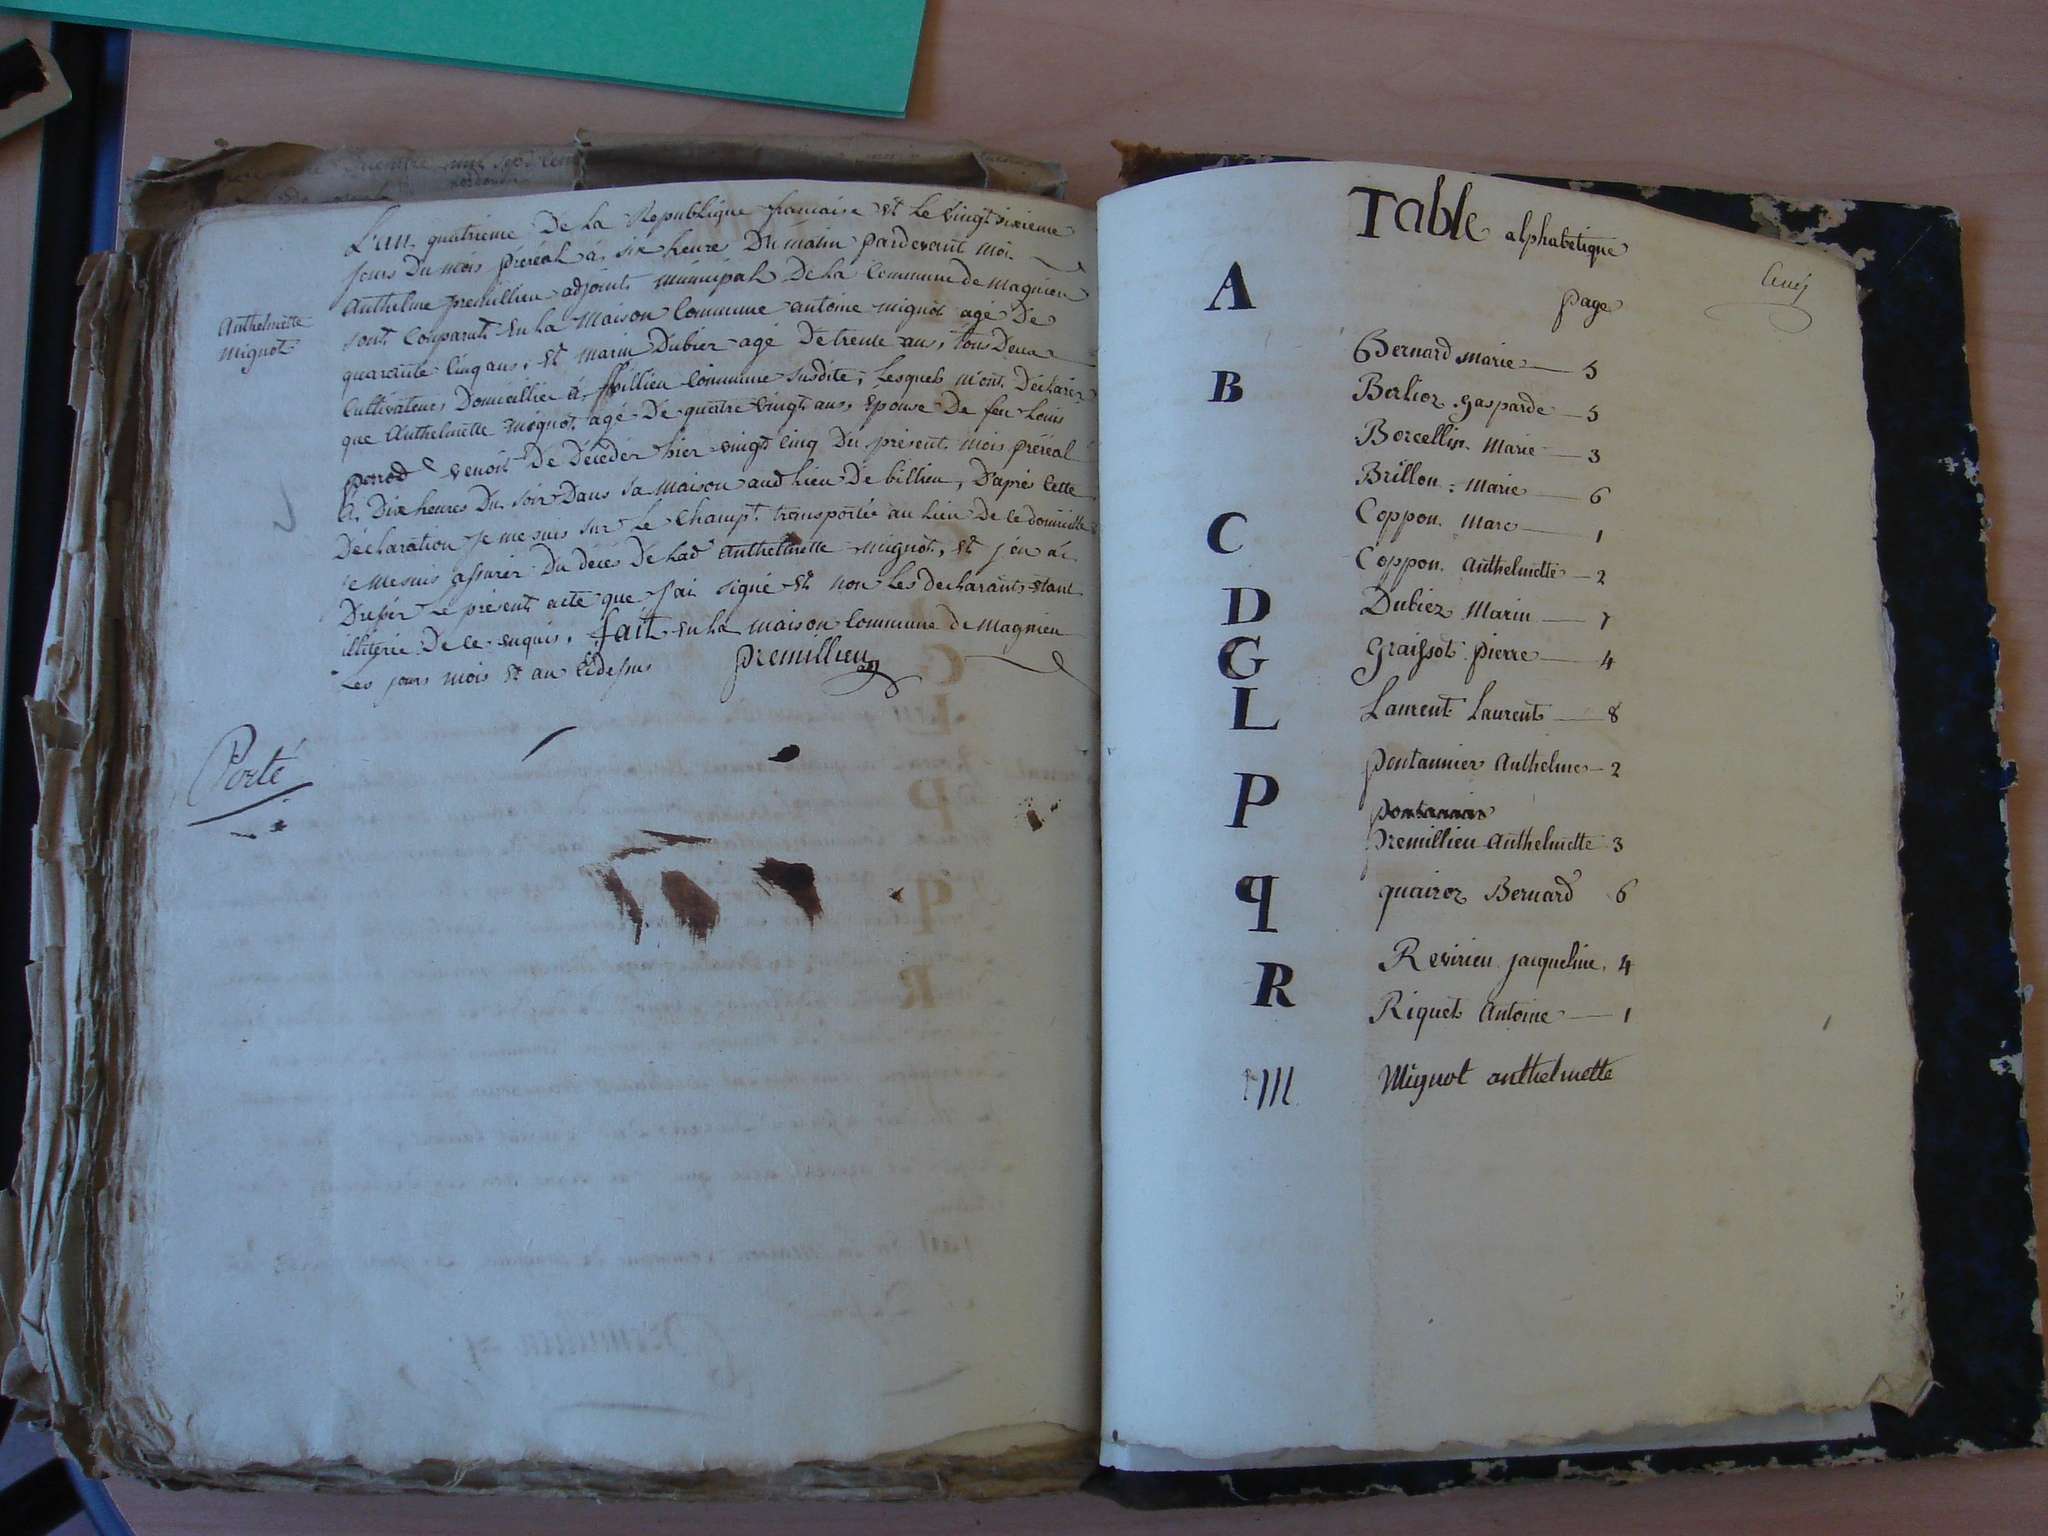 L'an quatrieme De la Republique francaise et le vingt sixieme
jours Du mois préréal à six heure Du matin pardevant moi
Anthelme premillieu adjoint municipal De la Commune de Magnieu
sont Comparut en la Maison Commune antoine mignot agé De
quarente Cinq ans, et marin Dubiez agé De trente ans, tous Deux
Cultivateurs Domicillier à Commune susdite, Lesquels m'ont Déclarer
que Anthelmette mignot agé De quatre vingt ans épouse De feu Louis
perrod venoit De Décéder hier vingt cinq Du présent mois préréal
à Dix heures Du soir Dans sa maison aud lieu De billieu, D'après cette
Déclaration je me suis sur le champt transportée au lieu De ce domicille
je me suis assurer Du décès De lad Anthelmette mignot, et j'en ai
Dresser Le présent acte que j'ai signé et non les declarants étant
illitérée De ce enquis, fait en la maison Commune de Magnieu
Les jours mois et an Cidessus premillieu
Anthelmette
Mignot
Porté
Table alphabetique
A
page
Bernard Marie — 5
B
Berlioz gasparde — 5
Borcellin Marie — 3
Brillon Marie — 6
C
Coppon Marc — 1
Coppon Anthelmette — 2
D
Dubiez Marin — 7
G
Graissot pierre — 4
L
Laurent Laurent — 8
pontannier Anthelme — 2
P
premillieu Anthelmette 3
q
quairoz Bernard 6
Revirieu jacqueline 4
R
Riquet Antoine — 1
M Mignot anthelmette